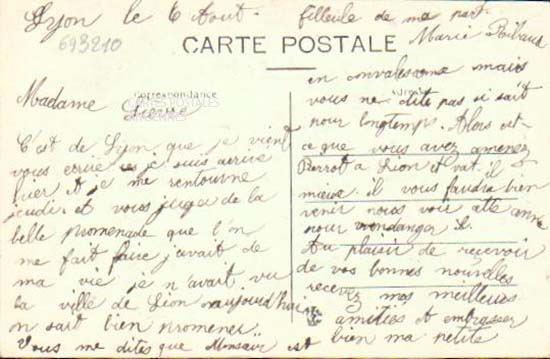 Lyon le 6 Aout.
693210
CARTE POSTALE
Correspondance
CARTES POSTALES
Madame Pierre
C'est de Lyon que je vient
vous ecrire je suis arrive
hier et je me retourne
jeudi. et vous juger de la
belle promenade que l'on
me fait faire javait de
ma vie je n'avait vu
la ville de Lion aujourd'hui
on sait bien promener.
Vous me dites que Monsair est
en convalesence mais
vous ne dite pas si sait
pour longtemps. Alors est-
ce que vous avez amenez
Perrot a Lion et vat. il
mieux. il vous faudra bien
venir nous voir cette anne
pour vendanger il.
Au plaisir de recevoir
de vos bonnes nouvelles
recevez mes meilleurs
amitiés et embrasser
bien ma petite
filleule de me part
Marie